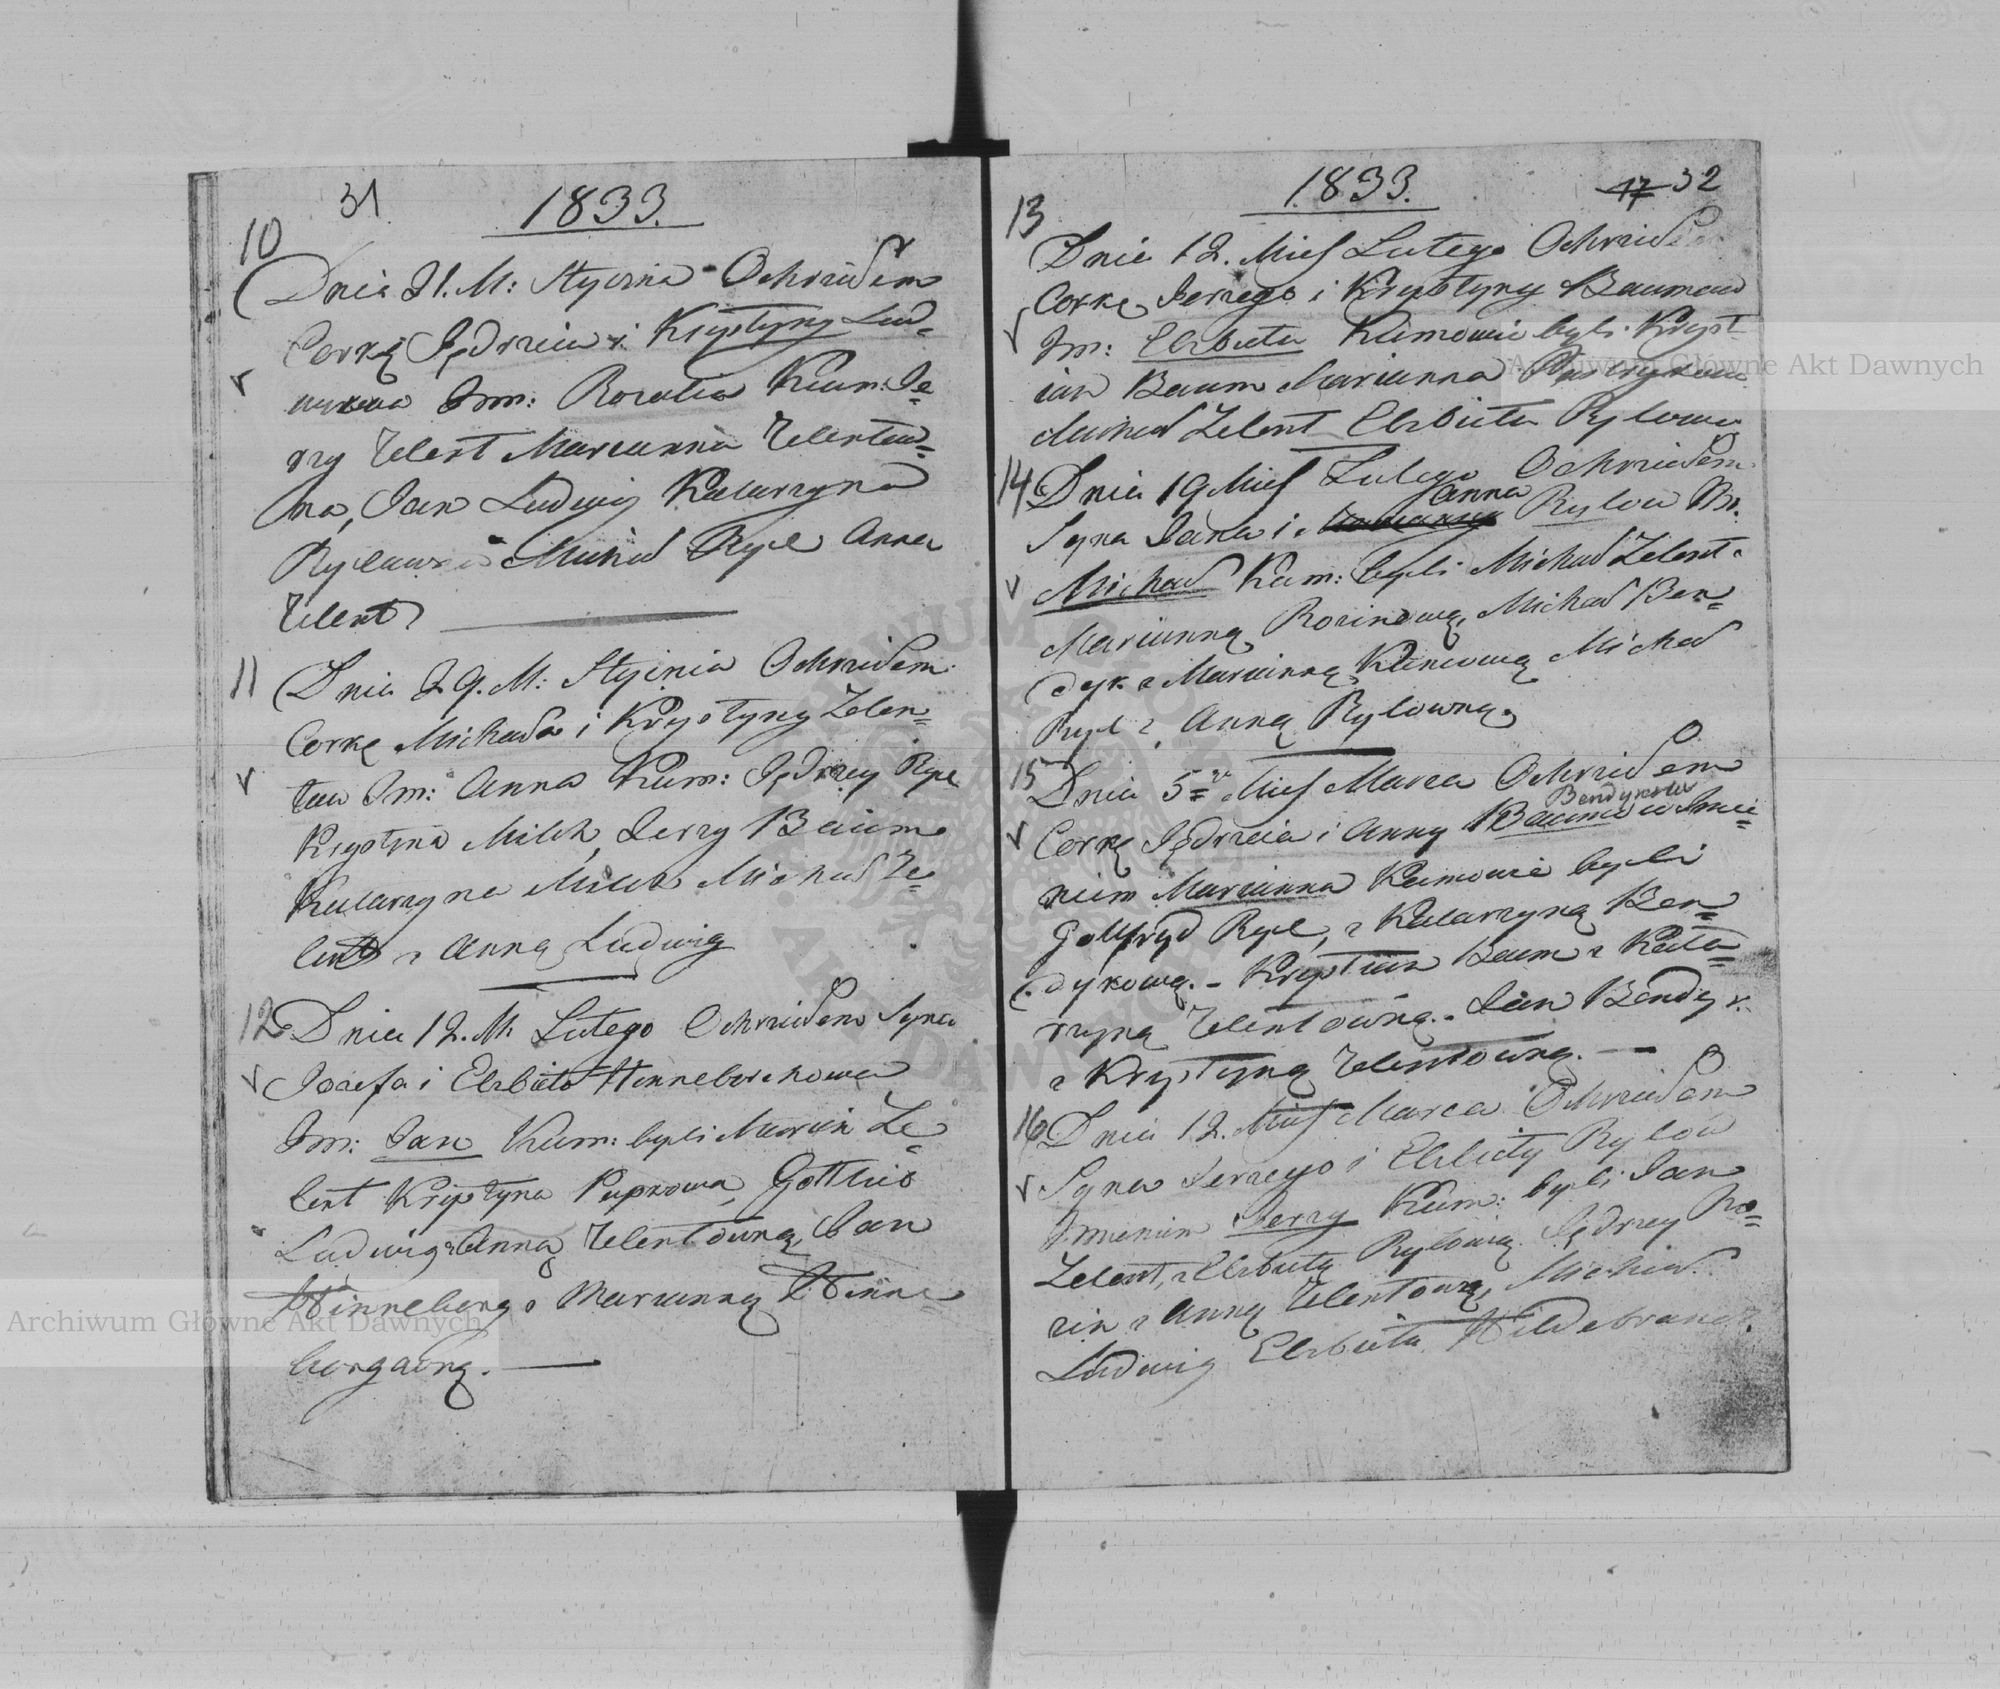 31
1833.
10
Dnia 21. M: Stycznia Ochrzciłem
Corkę Jędrzeia i Krystyny Lud=
Im: Rozalia Kum: Je
rzy Zelent Marianna Zelentow=
na, Jan Ludwig Katarzyna
Michał Ryl Anna
Zelent
11 Dnia 29. M: Stycznia Ochrzciłem
Corkę Michała i Krystyny Zelen=
tow Im: Anna Kum: Jędrzey Ryl
Krystyna Milch, Jerzy Baum
Katarzyna Milch Michał Ze=
lent z Anną Ludwig
12 Dnia 12. M Lutego Ochrzciłem Syna
Jozefa i Elzbiety
Im: Jan Kum: byli Marcin Ze=
lent Krystyna Pupkowa, Gottlieb
Ludwig z Anną Zelentowną, Jan
Hinneberg z Marianną Hinne=
bergowną.
1833. 17 32
13
Dnia 12. Mies Lutego Ochrzciłem
Corkę Jerzego i Krystyny Baumow
Im: Elzbieta Kumowie byli Kryst
ian Baum Marianna
Michał Zelent Elzbieta Rylowa
14 Dnia 19 Mies Lutego Ochrzciłem
Anna
Syna Jana i Rylow Im.
Michał Kum: byli Michał Zelent
Marianną Rozinową, Michał Ben=
dyk z Marianną Michał
Ryl z Anną Rylowną.
15 Dnia 5go Mies Marca Ochrzciłem
Bendykow
Corkę Jędrzeia i Anny Baumow Imie=
niem Marianna Kumowie byli
Gottfryd Ryl, z Katarzyną Ben=
dykową. - Krystian Baum z Kata=
rzyną Zelentowną. - Jan Bendyk
z Krystyną Zelentowną.
16 Dnia 12. Mies Marca Ochrzciłem
Syna Jerzego i Elzbiety Rylow
Imieniem Jerzy Kum: byli Jan
Zelent, z Elzbietą Rylową Jędrzey Ro=
zin z Anną Zelentową, Michał
Ludwig Elzbieta Hildebrandt.
Archiwum Główne Akt Dawnych
Archiwum Główne Akt Dawnych